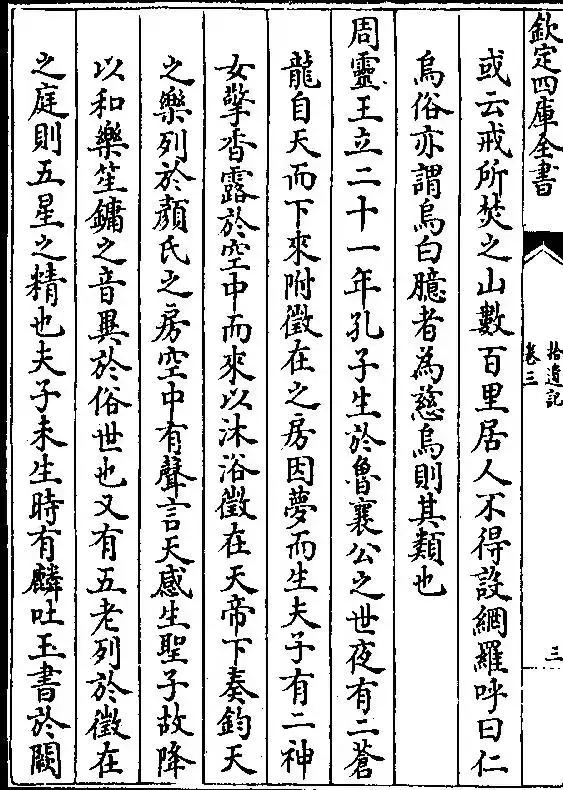 欽定四庫全書
拾遺記
卷三
三
或云戒所焚之山數百里居人不得設網羅呼曰仁
烏俗亦謂烏白臆者為慈烏則其類也
周靈王立二十一年孔子生於魯襄公之世夜有二蒼
龍自天而下來附徵在之房因夢而生夫子有二神
女擎香露於空中而來以沐浴徵在天帝下奏鈞天
之樂列於顏氏之房空中有聲言天感生聖子故降
以和樂笙鏞之音異於俗世也又有五老列於徵在
之庭則五星之精也夫子未生時有麟吐玉書於闕